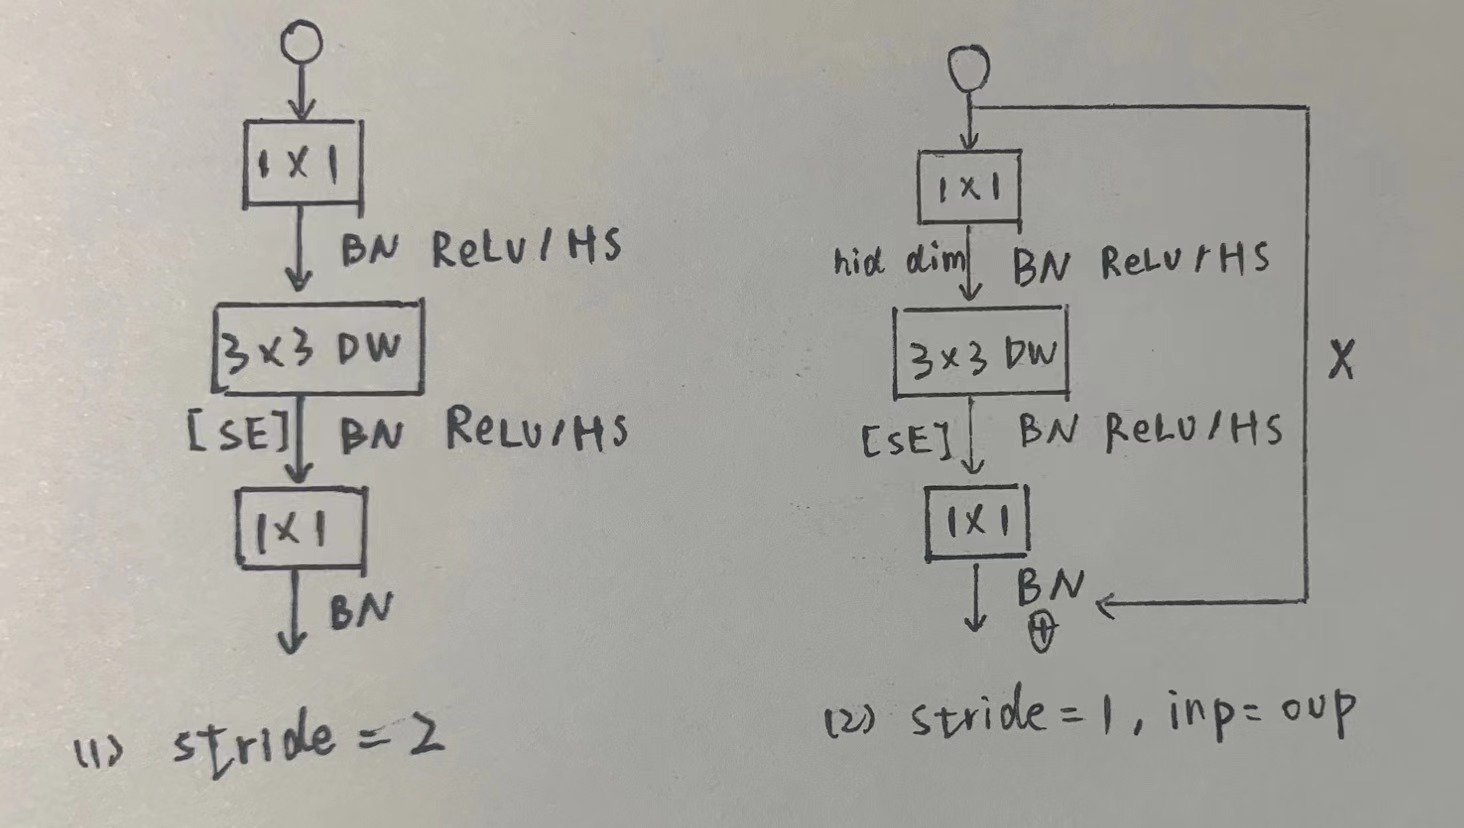 1×1
BN ReLU/HS
3×3 DW
[SE] BN ReLU/HS
1×1
BN
(1) stride=2
1×1
hid dim BN ReLU/HS
3×3 DW
X
[SE] BN ReLU/HS
1×1
BN
⊕
(2) stride=1, inp=oup